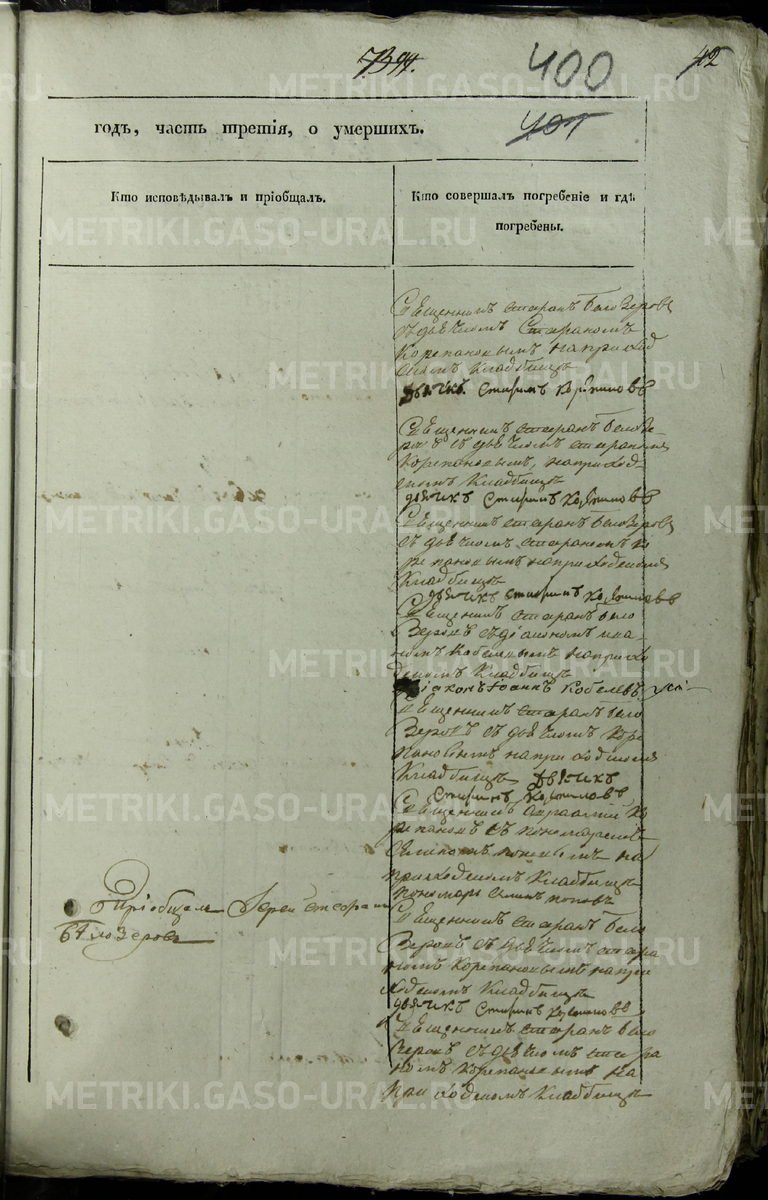 400
42
годъ, часть третія, о умершихъ.
401
Кто исповѣдывалъ и пріобщалъ.
Кто совершалъ погребеніе и гдѣ
погребены.
METRIKI.GASO-URAL.RU
Священникъ Стефанъ Белозеровъ
съ дьячкомъ Стефаномъ
Корепановымъ на приход
скомъ кладбищѣ
дьячкъ Стефанъ Корепановъ
Священникъ Стефанъ Белозе-
ровъ съ дьячкомъ Стефаномъ
Корепановымъ, на приход-
скомъ кладбищѣ
дьячкъ Стефанъ Корепановъ
Священникъ Стефанъ Белозеровъ
съ дьячкомъ Стефаномъ Ко
репановымъ на приходскомъ
кладбищѣ
дьячкъ Стефанъ Корепановъ
Священникъ Стефанъ Бело
Зеровъ съ діакономъ Иоан-
номъ Кобелевымъ на прихо
дскомъ кладбищѣ
діаконъ Іоаннъ Кобелевъ
Священникъ Стефанъ Бело
Зеровъ съ дьячкомъ Коре
пановымъ на приходскомъ
кладбищѣ дьячкъ
Стефанъ Корепановъ
Священникъ Ко
репановъ съ пономаремъ
Поповымъ на
приходскомъ кладбищѣ
пономарь Поповъ
Пріобщалъ Іерей Стефанъ
Бѣлозеровъ
Священникъ Стефанъ Бело
Зеровъ съ дьячкомъ Стефа
номъ Корепановымъ на при
ходскомъ кладбищѣ
дьячкъ Стефанъ Корепановъ
Священникъ Стефанъ Бело
Зеровъ съ дьячкомъ Стефа
номъ Корепановымъ на
приходскомъ кладбищѣ